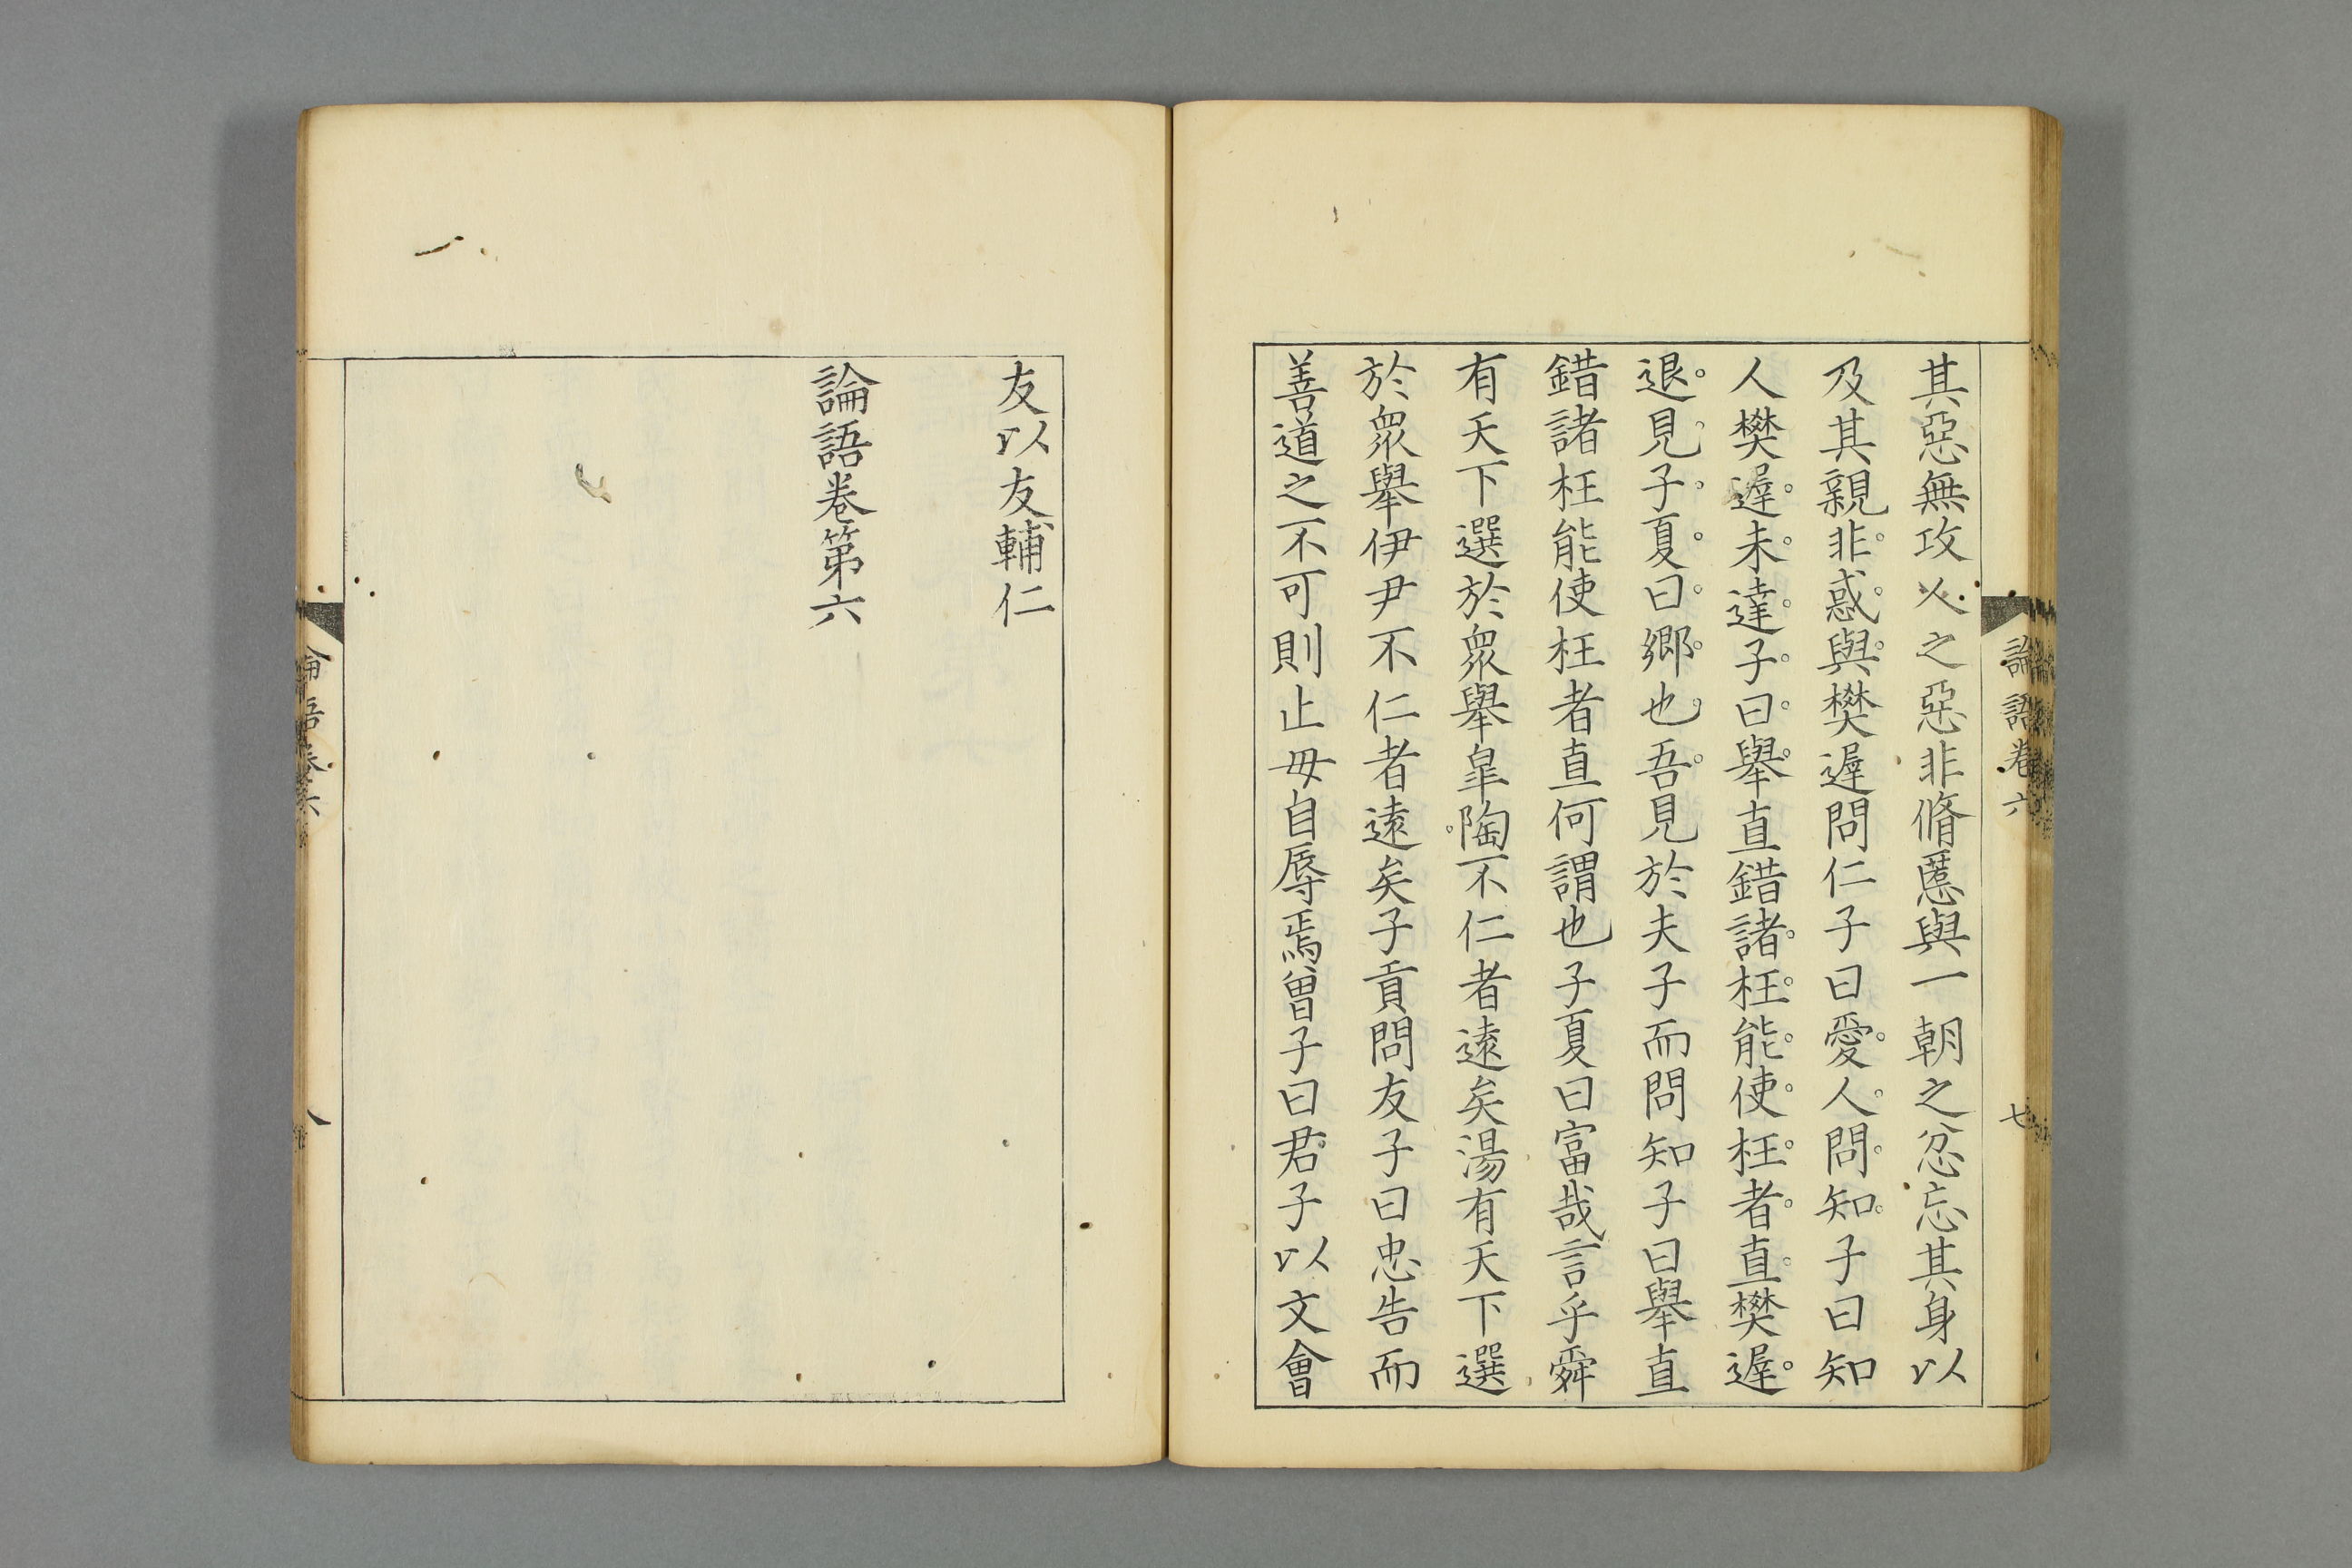 論語卷六
七
其惡無攻人之惡非脩慝與一朝之忿忘其身以
及其親非惑與樊遲問仁子曰愛人問知子曰知
人樊遲未達子曰舉直錯諸枉能使枉者直樊遲
退見子夏曰鄉也吾見於夫子而問知子曰舉直
錯諸枉能使枉者直何謂也子夏曰富哉言乎舜
有天下選於眾舉皐陶不仁者遠矣湯有天下選
於眾舉伊尹不仁者遠矣子貢問友子曰忠告而
善道之不可則止毋自辱焉曾子曰君子以文會
友以友輔仁
論語卷第六